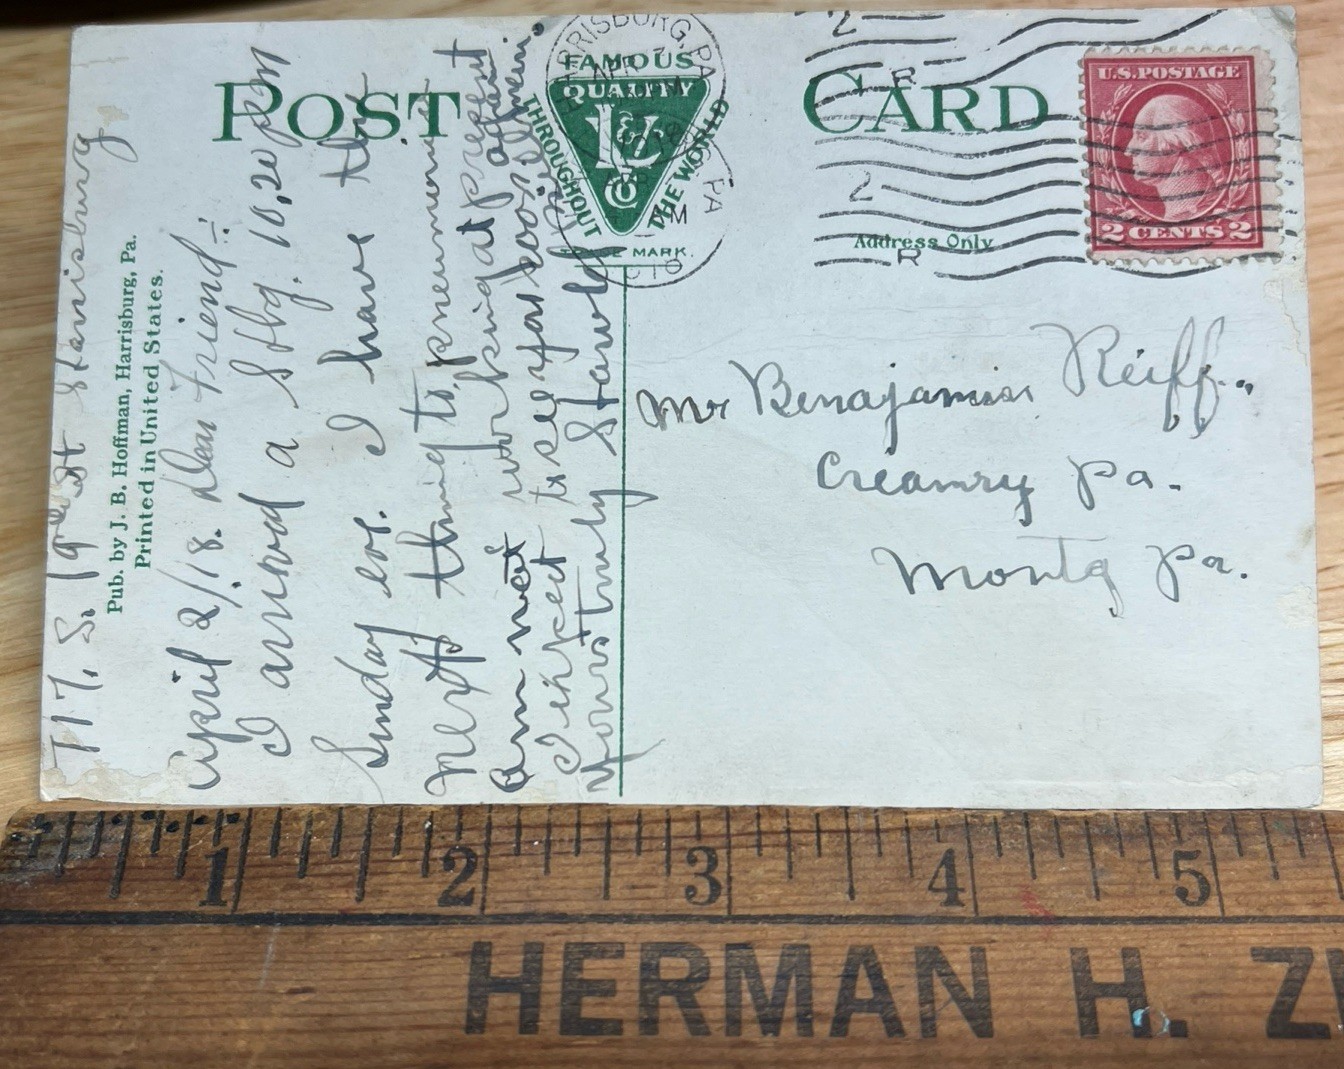 POST CARD
FAMOUS
QUALITY
THROUGHOUT THE WORLD
L & Co
TRADE MARK.
HARRISBURG, PA.
PA
AM
U.S. POSTAGE
2 CENTS 2
2
R
2
R
Address Only
Pub. by J. B. Hoffman, Harrisburg, Pa.
Printed in United States.
717. S. 19 St Harrisburg
April 2/18. Dear Friend:
I arrived a Hbg. 10,20 pm
Sunday eve. I have the
next thing to pneumunia
am not working at present
I expect to see you soon again
yours truly
Mr Benajamin Reiff.
Creamry Pa.
Montg Pa.
1 2 3 4 5
HERMAN H. Z